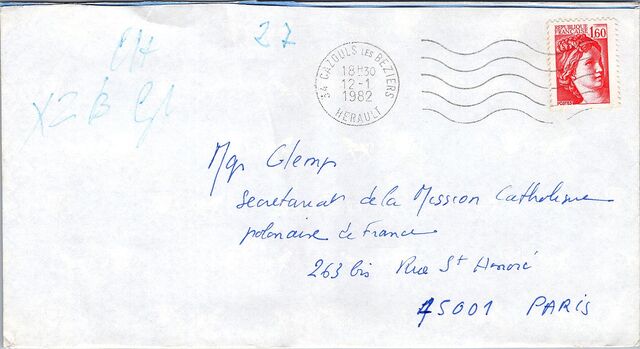 27
34 CAZOULS LES BEZIERS
18H30
12-1
1982
HERAULT
REPUBLIQUE FRANCAISE
1,60
POSTES
Mgr Glemp
Secretariat de la Mission Catholique
polonaise de France
263 bis Rue St Honoré
75001 PARIS